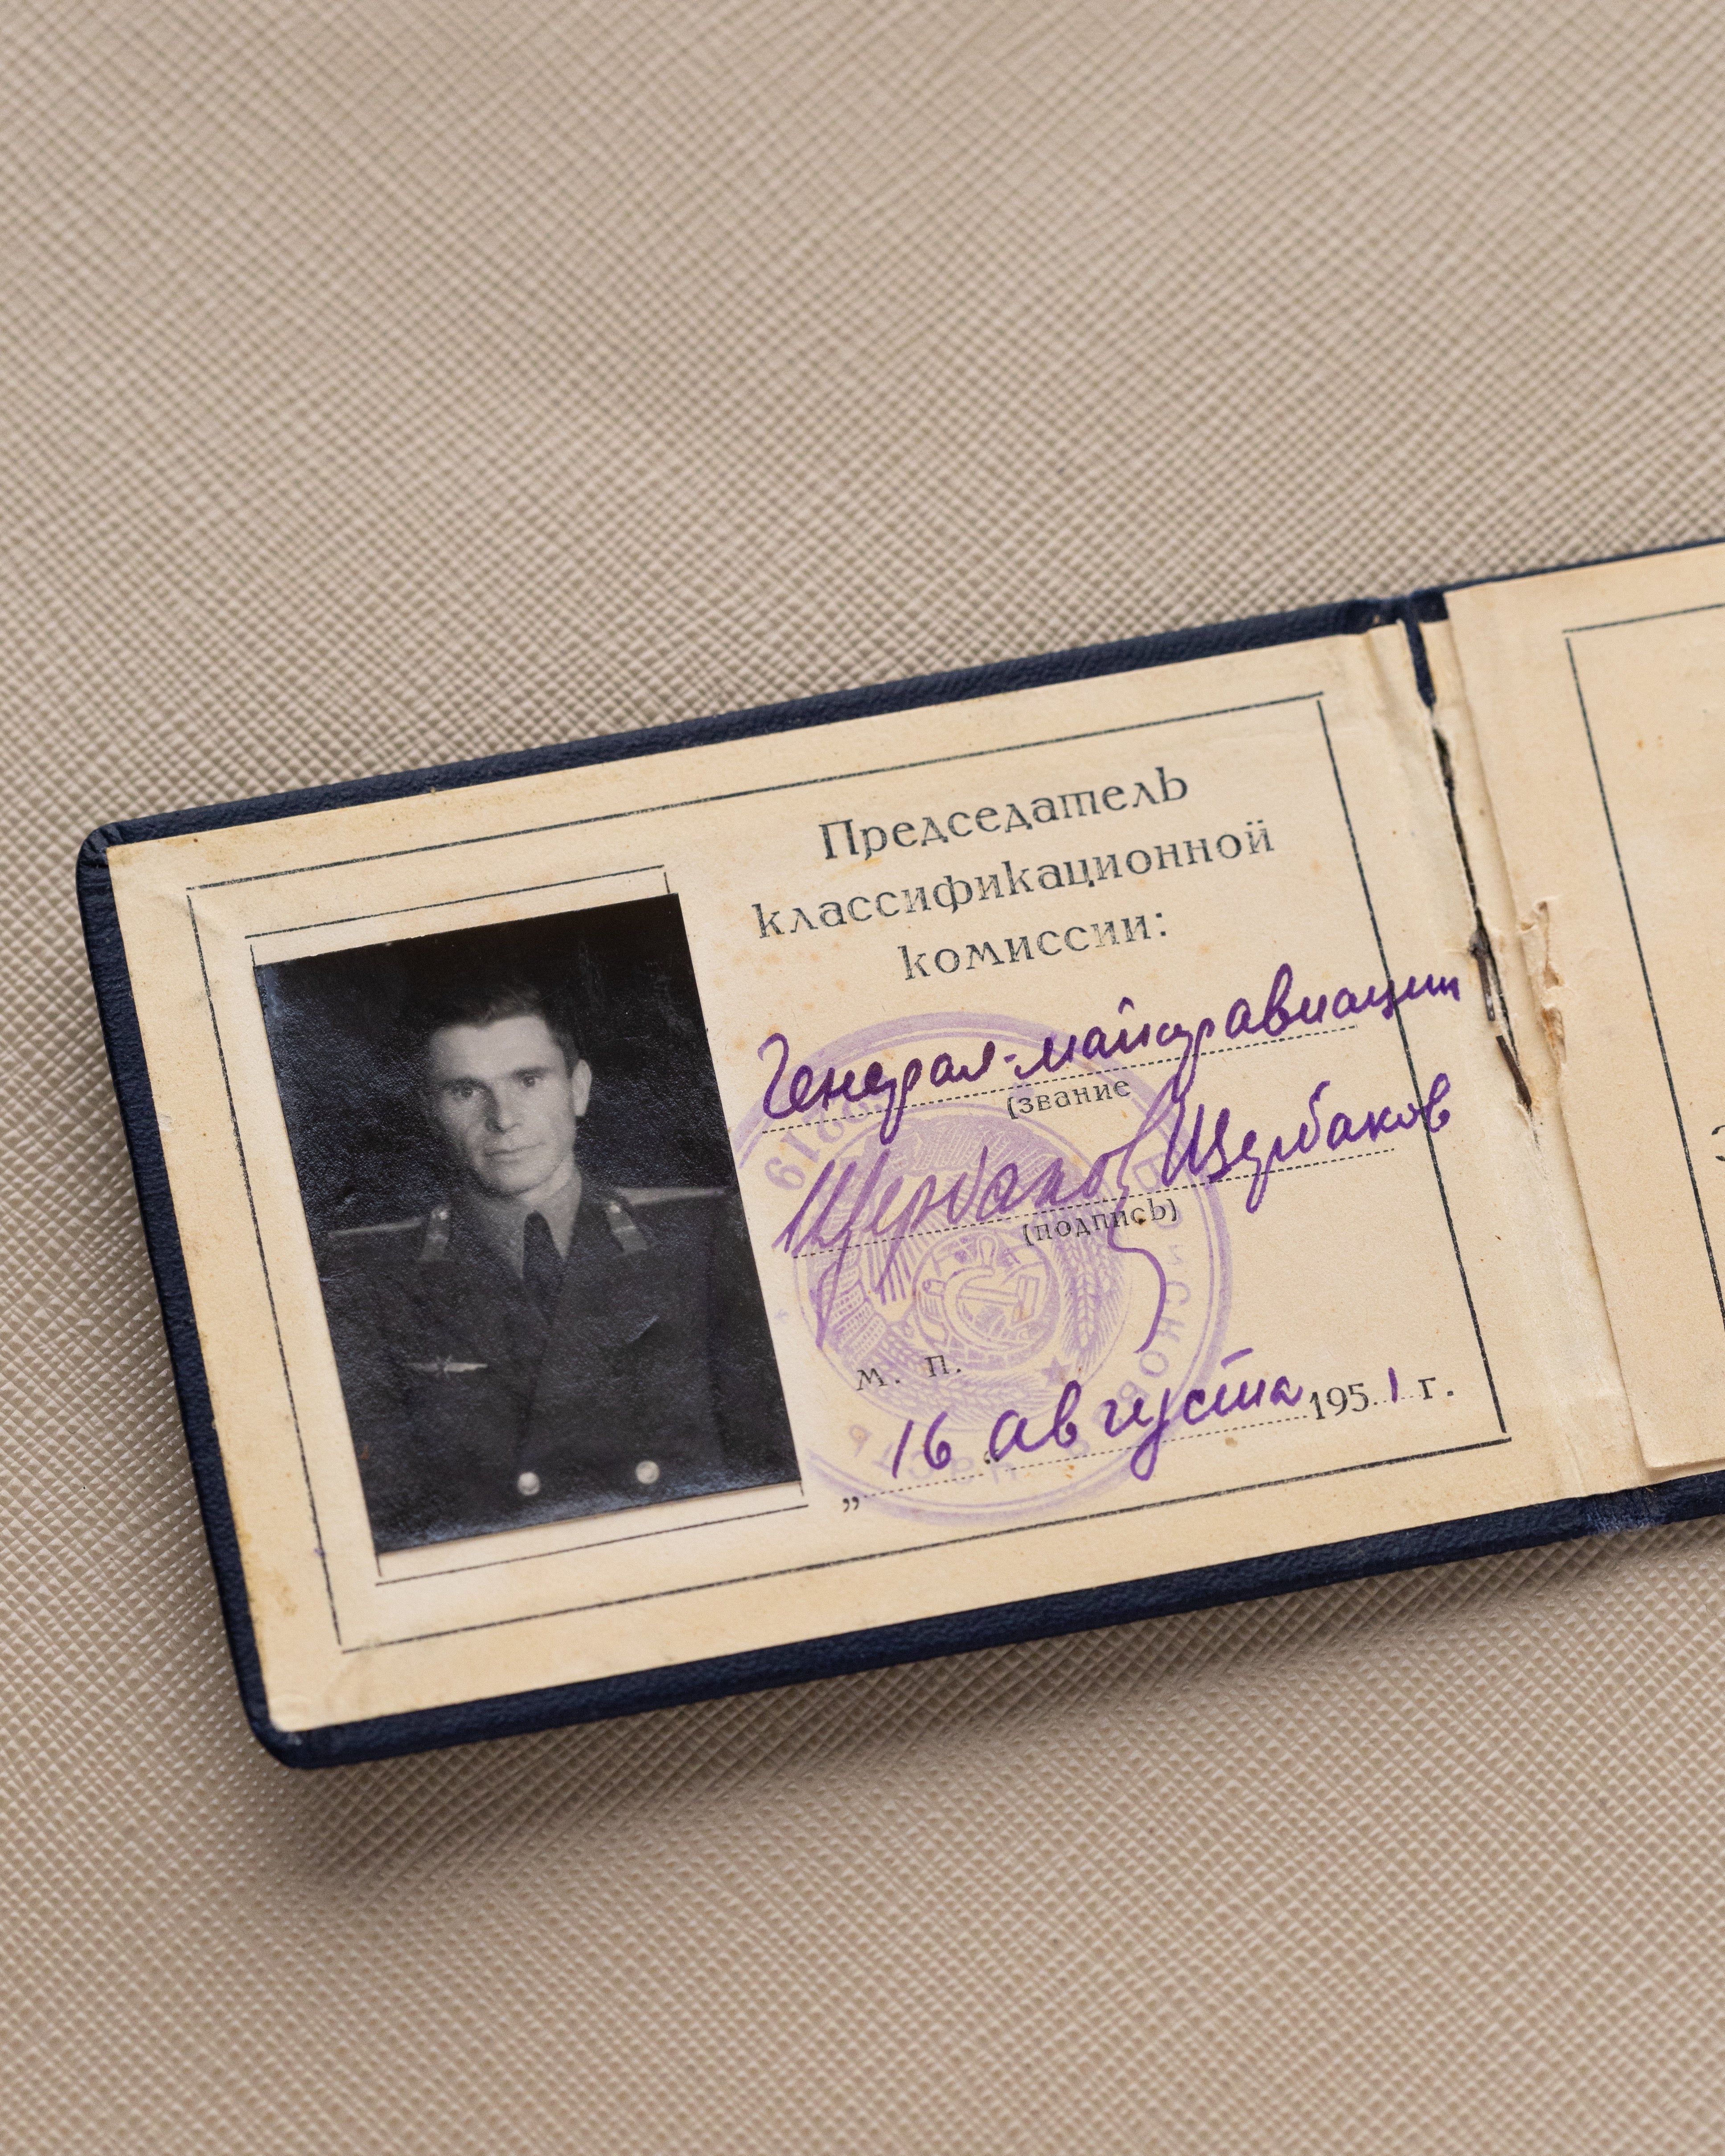 Председатель
классификационной
комиссии:
Генерал-майор авиации
(звание
Щербаков Щербаков
(подпись)
м. п.
„16 августа 1951 г.